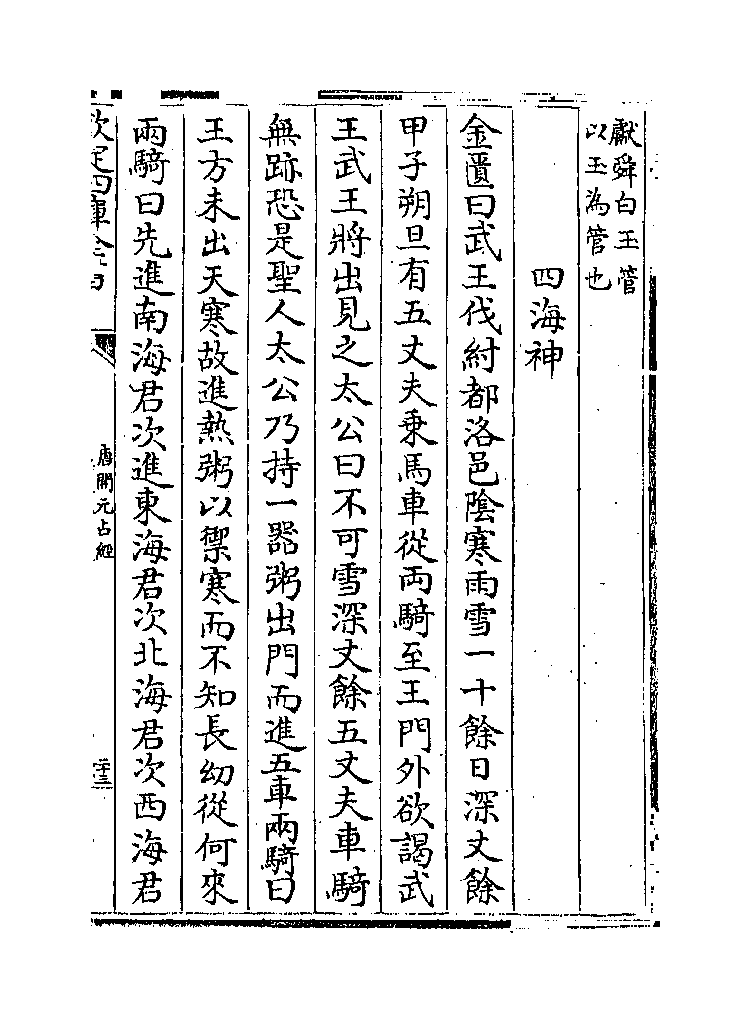 獻舜白玉管
以玉為管也
四海神
金匱曰武王伐紂都洛邑陰寒雨雪一十餘日深丈餘
甲子朔旦有五丈夫乗馬車從両騎至王門外欲謁武
王武王將出見之太公曰不可雪深丈餘五丈夫車騎
無跡恐是聖人太公乃持一器粥出門而進五車兩騎曰
王方未出天寒故進熱粥以禦寒而不知長幼從何來
兩騎曰先進南海君次進東海君次北海君次西海君
欽定四庫全書
唐開元占經
二十三